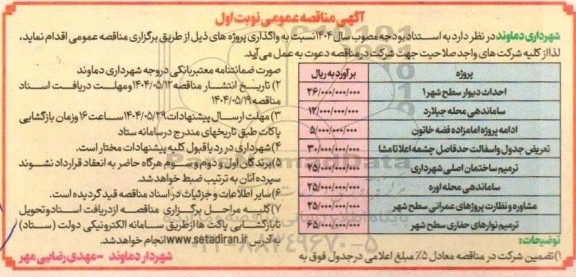 آگهی مناقصه عمومی نوبت اول
شهرداری دماوند در نظر دارد به استناد بودجه مصوب سال ۱۴۰۴ نسبت به واگذاری پروژه های ذیل از طریق برگزاری مناقصه عمومی اقدام نماید،
لذا از کلیه شرکت های واجد صلاحیت جهت شرکت در مناقصه دعوت به عمل می آید.
پروژه برآورد به ریال
احداث دیوار سطح شهر۱ ۲۶/۰۰۰/۰۰۰/۰۰۰
ساماندهی محله جیلارد ۱۲/۰۰۰/۰۰۰/۰۰۰
ادامه پروژه امامزاده فضه خاتون ۵/۰۰۰/۰۰۰/۰۰۰
تعریض جدول و اسفالت حدفاصل چشمه اعلا تا مشا ۳۰/۰۰۰/۰۰۰/۰۰۰
ترمیم ساختمان اصلی شهرداری ۳۵/۰۰۰/۰۰۰/۰۰۰
ساماندهی محله اوره ۲۵/۰۰۰/۰۰۰/۰۰۰
مشاوره و نظارت پروژهای عمرانی سطح شهر ۲۵/۰۰۰/۰۰۰/۰۰۰
ترمیم نوارهای حفاری سطح شهر ۶۵/۰۰۰/۰۰۰/۰۰۰
توضیحات:
۱) تضمین شرکت در مناقصه معادل ۵٪ مبلغ اعلامی در جدول فوق به
صورت ضمانتنامه معتبر بانکی در وجه شهرداری دماوند
۲) تاریخ انتشار مناقصه ۱۴۰۴/۰۵/۱۲ و مهلت دریافت اسناد
مناقصه ۱۴۰۴/۰۵/۱۹
۳) مهلت ارسال پیشنهادات ۱۴۰۴/۰۵/۲۹ ساعت ۱۶ و زمان بازگشایی
پاکات طبق تاریخهای مندرج در سامانه ستاد
۴) شهرداری در رد یا قبول کلیه پیشنهادات مختار است.
۵) برندگان اول و دوم و سوم هرگاه حاضر به انعقاد قرارداد نشوند
سپرده آنان به ترتیب ضبط خواهد شد.
۶) سایر اطلاعات و جزئیات در اسناد مناقصه قید گردیده است.
۷) کلیه مراحل برگزاری مناقصه از دریافت اسناد و تحویل
تا بازگشایی پاکت ها از طریق سامانه الکترونیکی دولت (ستاد)
به آدرس www.setadiran.ir انجام خواهد شد.
شهردار دماوند - مهدی رضایی مهر